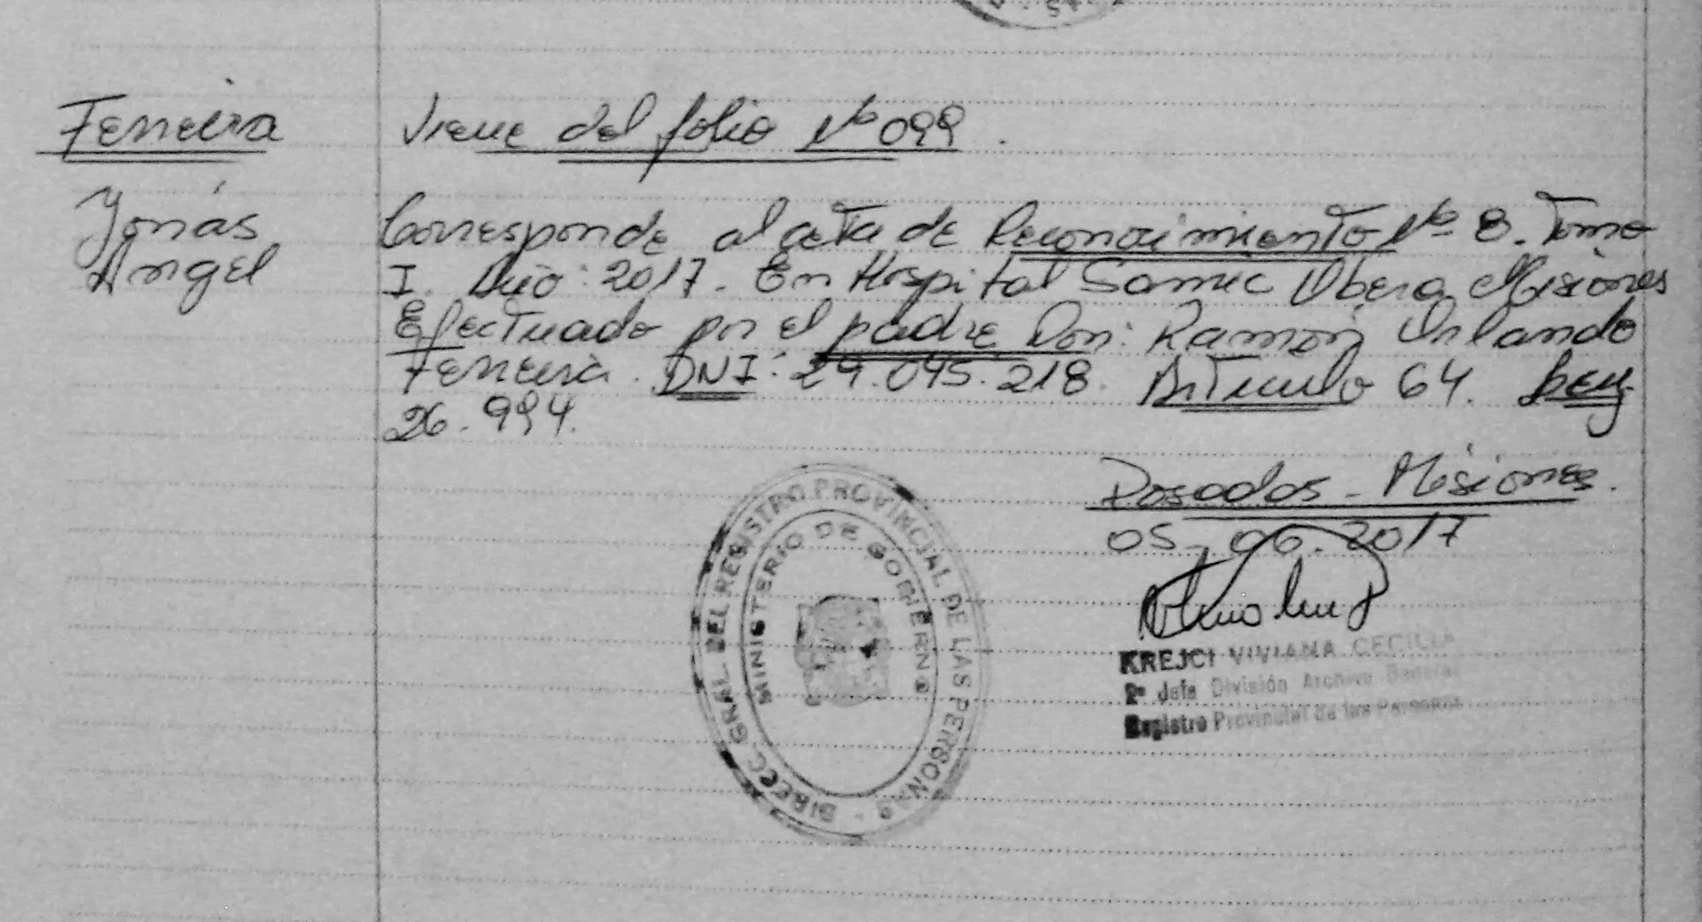 Ferreira
Jonás
Angel
Viene del folio Nº 099.
Corresponde al acta de Reconocimiento Nº 8. Tomo
I. Año: 2017. En Hospital Samic Obera Misiones
Efectuado por el padre Don: Ramón Orlando
Ferreira. DNI: 29.045.218. Artículo 64. Ley
26.994.
Posadas - Misiones.
05-06.2017
KREJCI VIVIANA CECILIA
2º Jefe División Archivo General
Registro Provincial de las Personas
DIRECC. GRAL. DEL REGISTRO PROVINCIAL DE LAS PERSONAS
MINISTERIO DE GOBIERNO